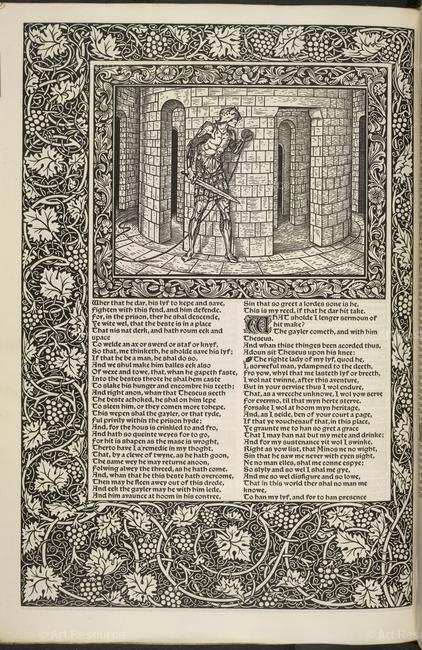 Wher that he dar, his lyf to kepe and save,
Fighten with this fend, and him defende.
For, in the prison, ther he shal descende,
Ye wite wel, that the beste is in a place
That nis nat derk, and hath roum eek and
space
To welde an ax or swerd or staf or knyf,
So that, me thinketh, he sholde save his lyf;
If that he be a man, he shal do so.
And we shul make him balles eek also
Of wexe and towe, that, whan he gapeth faste,
Into the bestes throte he shal hem caste
To slake his hunger and encombre his teeth;
And right anon, whan that Theseus seeth
The beste achoked, he shal on him lepe
To sleen him, or they comen more tohepe.
This wepen shal the gayler, or that tyde,
Ful prively within the prison hyde;
And, for the hous is crinkled to and fro,
And hath so queinte weyes for to go,
For hit is shapen as the mase is wroght,
Therto have I a remedie in my thoght,
That, by a clewe of twyne, as he hath goon,
The same wey he may returne anoon,
Folwing alwey the threed, as he hath come.
And, whan that he this beste hath overcome,
Then may he fleen awey out of this drede,
And eek the gayler may he with him lede,
And him avaunce at hoom in his contree,
Sin that so greet a lordes sone is he.
This is my reed, if that he dar hit take.
WHAT sholde I lenger sermoun of
hit make?
The gayler cometh, and with him
Theseus.
And whan thise thinges been acorded thus,
Adoun sit Theseus upon his knee:
The righte lady of my lyf, quod he,
I, sorweful man, ydampned to the deeth,
Fro yow, whyl that me lasteth lyf or breeth,
I wol nat twinne, after this aventure,
But in your servise thus I wol endure,
That, as a wrecche unknowe, I wol yow serve
For evermo, til that myn herte sterve.
Forsake I wol at hoom myn heritage,
And, as I seide, ben of your court a page,
If that ye vouchesauf that, in this place,
Ye graunte me to han so gret a grace
That I may han nat but my mete and drinke;
And for my sustenance yit wol I swinke,
Right as yow list, that Minos ne no wight,
Sin that he saw me never with eyen sight,
Ne no man elles, shal me conne espye;
So slyly and so wel I shal me gye,
And me so wel disfigure and so lowe,
That in this world ther shal no man me
knowe,
To han my lyf, and for to han presence
© Art Resource
Art Resource